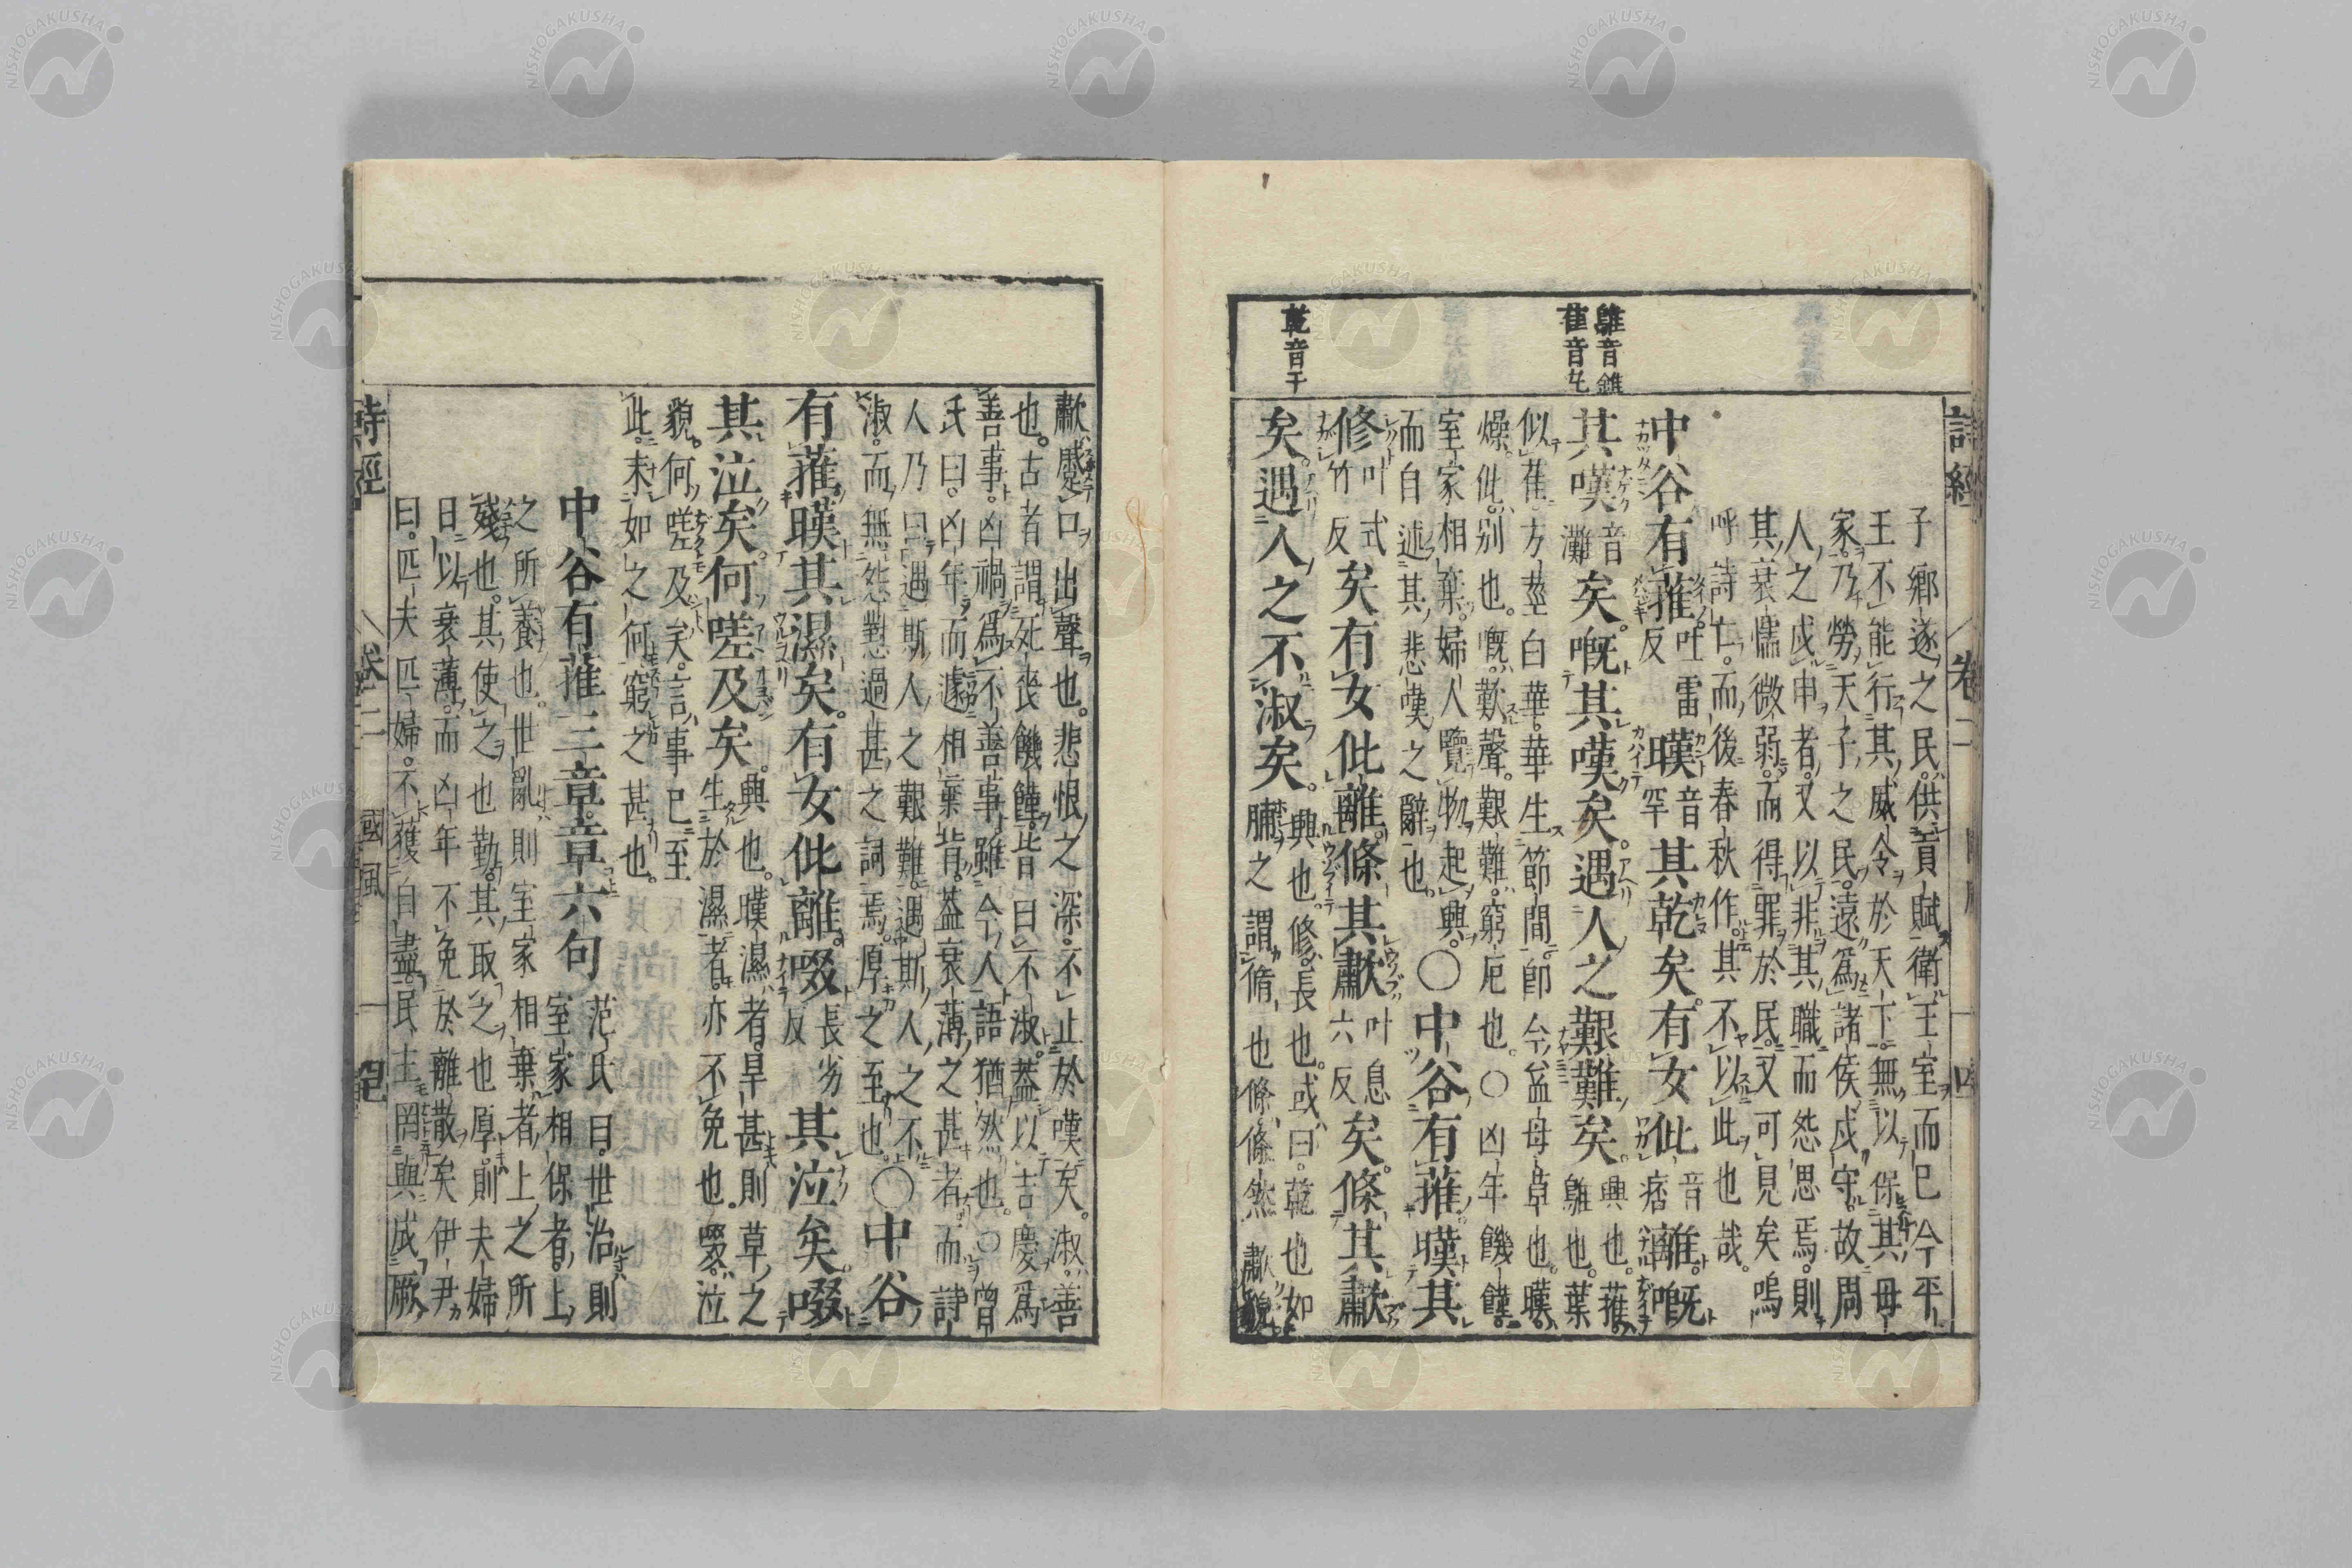 詩經 卷二 國風 四
鵻音錐
萑音丸
乾音干
子鄉遂之民供貢賦衛王室而已今平
王不能行其威令於天下無以保其母
家乃勞天子之民遠爲諸侯戍守故周
人之戍申者又以非其職而怨思焉則
其衰懦微弱而得罪於民又可見矣嗚
呼詩亡而後春秋作其不以此也哉
中谷有蓷吐雷反暵音罕其乾矣有女仳音痞離嘅
其嘆音灘矣嘅其嘆矣遇人之艱難矣興也蓷鵻也葉
似萑方莖白華華生節間卽今益母草也暵
燥仳別也嘅歎聲艱難窮厄也○凶年饑饉
室家相棄婦人覽物起興
而自述其悲嘆之辭也○中谷有蓷暵其
修叶式竹反矣有女仳離條其歗叶息六反矣條其歗
矣遇人之不淑矣興也修長也或曰乾也如
脯之謂脩也條條然歗貌
歗蹙口出聲也悲恨之深不止於嘆矣淑善
也古者謂死喪饑饉皆曰不淑蓋以吉慶爲
善事凶禍爲不善事雖今人語猶然也○曾
氏曰凶年而遽相棄背蓋衰薄之甚者而詩
人乃曰遇斯人之艱難遇斯人之不
淑而無怨懟過甚之詞焉厚之至也○中谷
有蓷暵其濕矣有女仳離啜張劣反其泣矣啜
其泣矣何嗟及矣興也暵濕者旱甚則草之
生於濕者亦不免也啜泣
貌何嗟及矣言事已至
此末如之何窮之甚也
中谷有蓷三章章六句范氏曰世治則
室家相保者上
之所養也世亂則室家相棄者上之所
殘也其使之也勤其取之也厚則夫婦
日以衰薄而凶年不免於離散矣伊尹
曰匹夫匹婦不獲自盡民主罔與成厥
詩經 卷二 國風